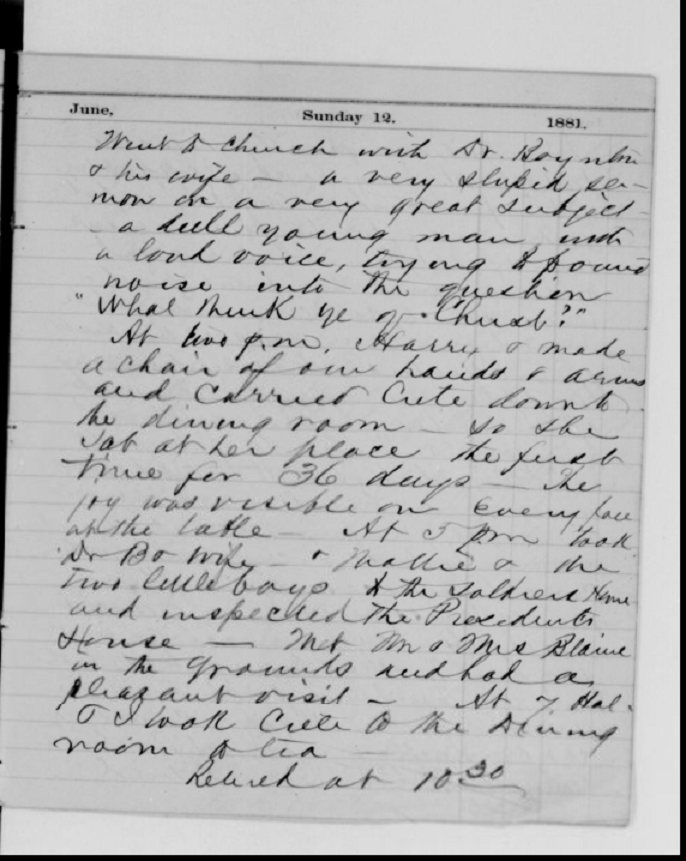 June, Sunday 12. 1881.
Went to church with Dr. Boynton
& his wife — a very stupid ser-
mon on a very great subject —
- a dull young man, with
a loud voice, trying to pound
noise into the question
"What think ye of Christ?"
At two p.m. Harry & I made
a chair of our hands & arms
and carried Crete down to
the dining room — so she
sat at her place the first
time for 36 days — The
joy was visible on every face
at the table — At 5 p.m. took
Dr B & wife — & Mollie & the
two little boys to the Soldiers Home
and inspected the Presidents
House — Met Mr & Mrs Blaine
in the grounds and had a
pleasant visit — At 7 Hal-
& I took Crete to the Dining
room to tea —
Retired at 10 30